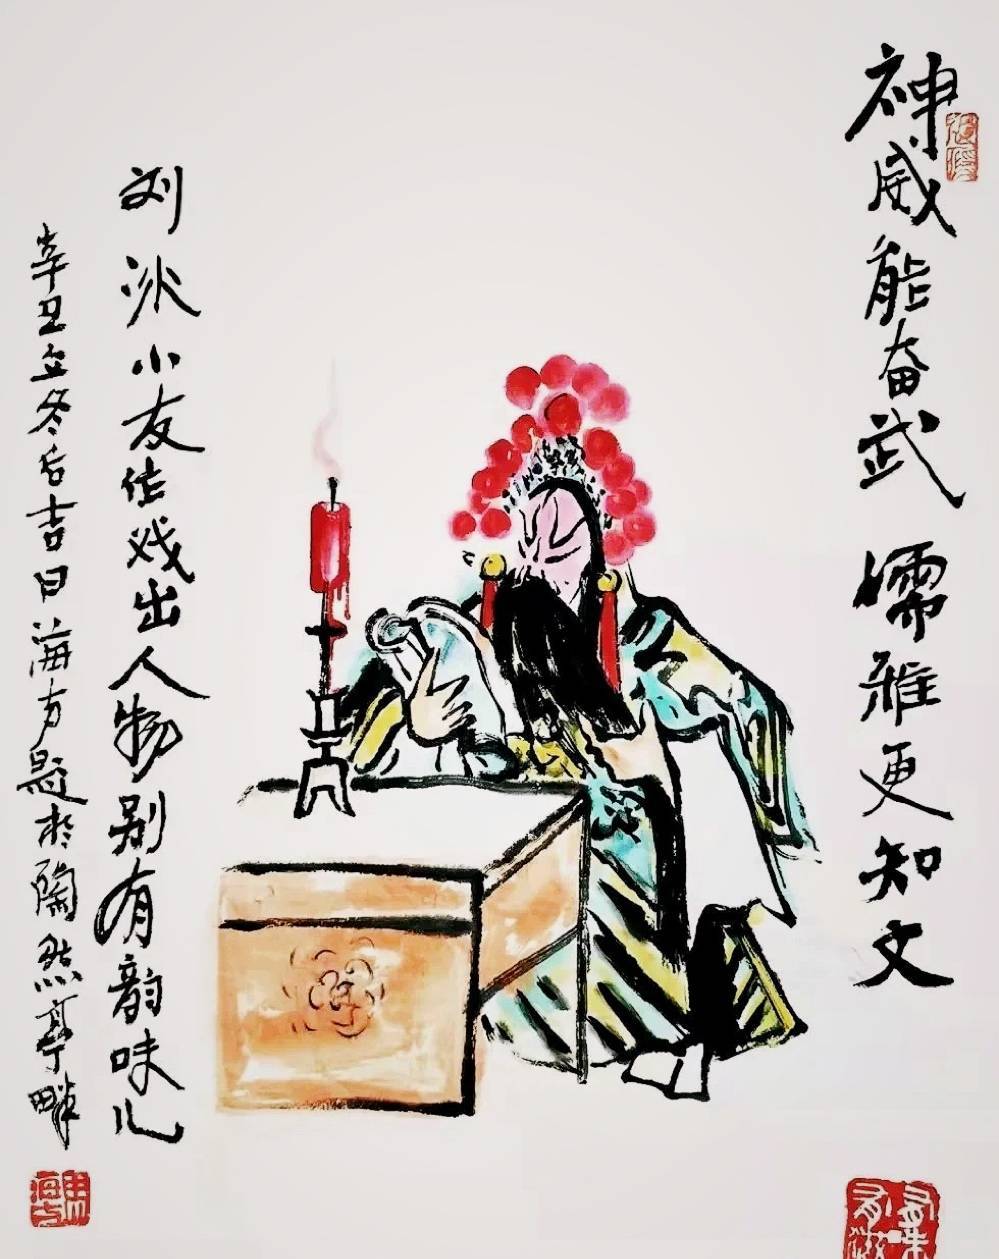 神威能奋武 儒雅更知文
刘沙小友作戏出人物别有韵味儿
辛丑立冬后吉日海方题于陶然亭畔